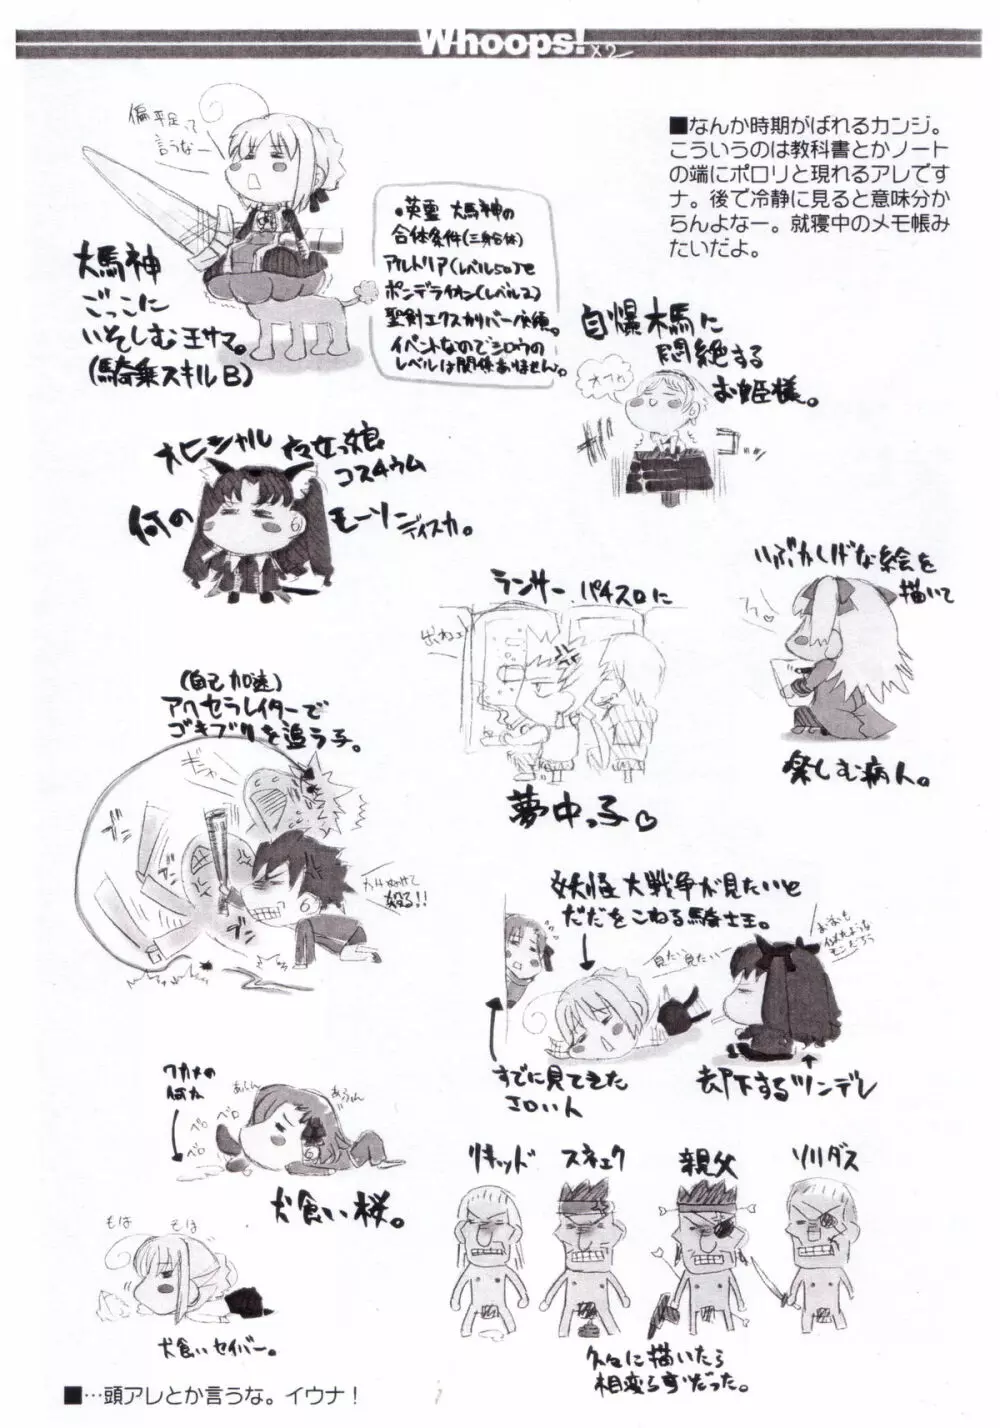 Whoops! ×2
■なんか時期がばれるカンジ。
こういうのは教科書とかノート
の端にポロリと現れるアレです
ナ。後で冷静に見ると意味分か
らんよなー。就寝中のメモ帳み
たいだよ。
偏平足って
言うなー
大馬神
ごっこに
いそしむ王サマ。
(騎乗スキルB)
・英霊 大馬神の
合体条件(三身合体)
アルトリア(レベル50)と
ポンデライオン(レベル2)
聖剣エクスカリバー
イベントなのでシロウの
レベルは関係ありません。
自爆木馬に
悶絶する
お姫様。
オフゥ
オヒシャル
コスチウム
何の
モーソンディスカ。
いぶかしげな絵を
描いて
フフ♡
楽しむ病人。
ランサー パチスロに
出ねェ
夢中っ子♡
(自己加速)
アクセラレイターで
ゴキブリを追う子。
殴る!!
妖怪大戦争が見たいと
だだをこねる騎士王。
見たい見たいー
すでに見てきた
エロい人
却下するツンデレ
ワカメの
何か
ペロ
ペロ
ペロ
犬食い桜。
もほ
もほ
犬食いセイバー。
リキッド
スネェク
親父
ソリダス
久々に描いたら
相変らずだった。
■…頭アレとか言うな。イウナ！